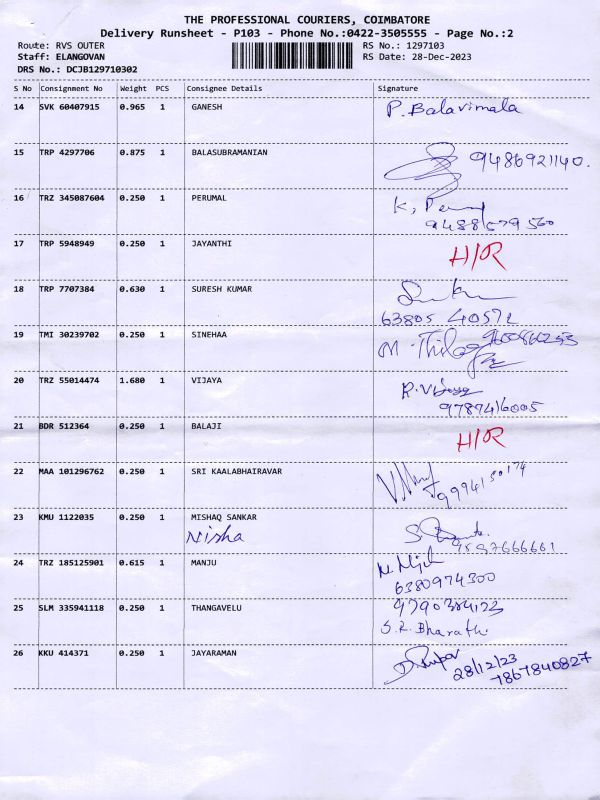 THE PROFESSIONAL COURIERS, COIMBATORE
Delivery Runsheet - P103 - Phone No.:0422-3505555 - Page No.:2
Route: RVS OUTER RS No.: 1297103
Staff: ELANGOVAN RS Date: 28-Dec-2023
DRS No.: DCJB129710302
S No Consignment No Weight PCS Consignee Details Signature
14 SVK 60407915 0.965 1 GANESH P. Balavimala
15 TRP 4297706 0.875 1 BALASUBRAMANIAN 9486921140.
16 TRZ 345087604 0.250 1 PERUMAL K,
9488579560
17 TRP 5948949 0.250 1 JAYANTHI H/R
18 TRP 7707384 0.630 1 SURESH KUMAR
63805 40572
19 TMI 30239702 0.250 1 SINEHAA M. Thilag
20 TRZ 55014474 1.680 1 VIJAYA R.Vijaya
9789416005
21 BDR 512364 0.250 1 BALAJI H/R
22 MAA 101296762 0.250 1 SRI KAALABHAIRAVAR 9994150174
23 KMU 1122035 0.250 1 MISHAQ SANKAR
Nisha 9597666661
24 TRZ 185125901 0.615 1 MANJU
6380974300
25 SLM 335941118 0.250 1 THANGAVELU 9790384123
S.R. Bharathi
26 KKU 414371 0.250 1 JAYARAMAN
28/12/23
7867840827